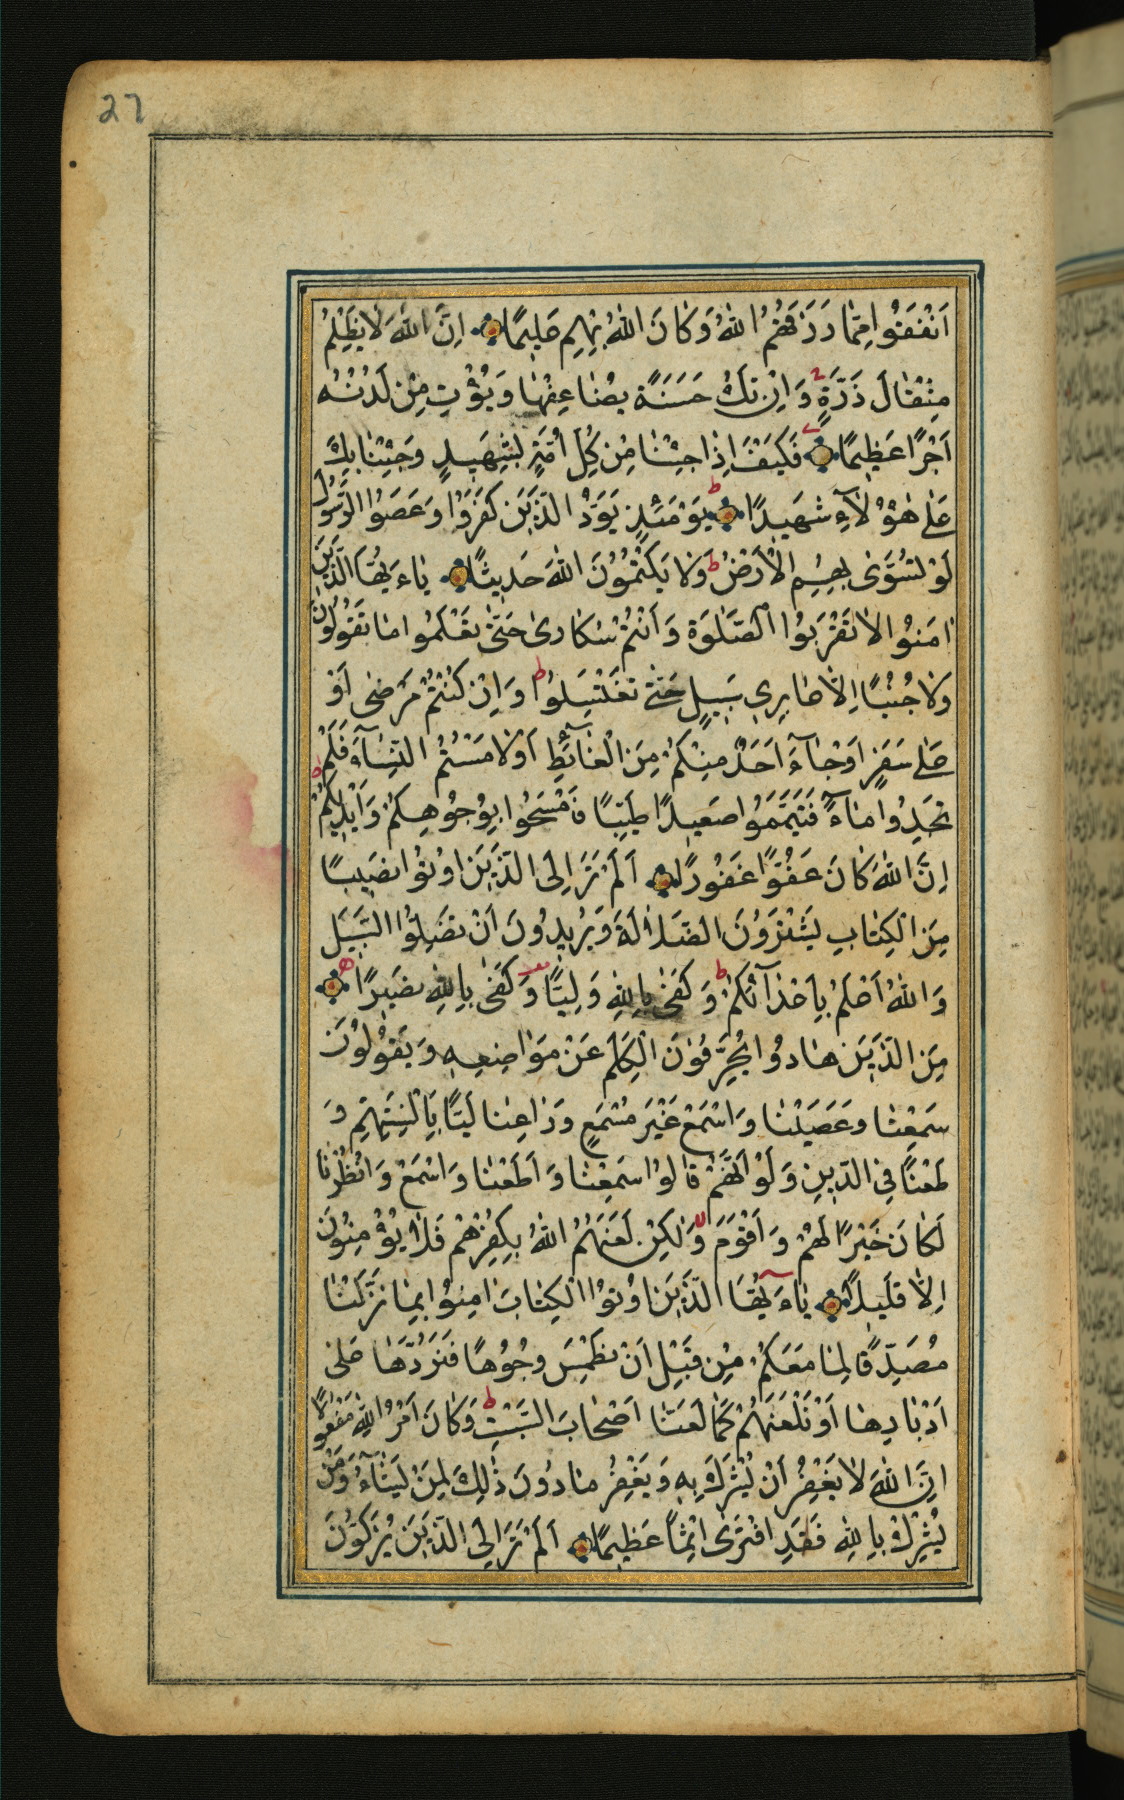 27
اَنْفَقُوا مِمّٰا رَزَقَهُمُ اللّٰهُ وَكٰانَ اللّٰهُ بِهِمْ عَلِيمًا اِنَّ اللّٰهَ لٰا يَظْلِمُ
مِثْقٰالَ ذَرَّةٍ وَاِنْ تَكُ حَسَنَةً يُضٰاعِفْهٰا وَيُؤْتِ مِنْ لَدُنْهُ
اَجْرًا عَظِيمًا فَكَيْفَ اِذٰا جِئْنٰا مِنْ كُلِّ اُمَّةٍ بِشَهِيدٍ وَجِئْنٰا بِكَ
عَلٰى هٰؤُلٰآءِ شَهِيدًا يَوْمَئِذٍ يَوَدُّ الَّذِينَ كَفَرُوا وَعَصَوُا الرَّسُولَ
لَوْ تُسَوّٰى بِهِمُ الْاَرْضُ وَلٰا يَكْتُمُونَ اللّٰهَ حَدِيثًا يٰاءَيُّهَا الَّذِينَ
اٰمَنُوا لٰا تَقْرَبُوا الصَّلٰوةَ وَاَنْتُمْ سُكٰارىٰ حَتّٰى تَعْلَمُوا مٰا تَقُولُونَ
وَلٰا جُنُبًا اِلّٰا عٰابِرِي سَبِيلٍ حَتّٰى تَغْتَسِلُوا وَاِنْ كُنْتُمْ مَرْضٰى اَوْ
عَلٰى سَفَرٍ اَوْ جٰآءَ اَحَدٌ مِنْكُمْ مِنَ الْغٰآئِطِ اَوْ لٰامَسْتُمُ النِّسٰآءَ فَلَمْ
تَجِدُوا مٰآءً فَتَيَمَّمُوا صَعِيدًا طَيِّبًا فَامْسَحُوا بِوُجُوهِكُمْ وَاَيْدِيكُمْ
اِنَّ اللّٰهَ كٰانَ عَفُوًّا غَفُورًا اَلَمْ تَرَ اِلَى الَّذِينَ اُوتُوا نَصِيبًا
مِنَ الْكِتٰابِ يَشْتَرُونَ الضَّلٰالَةَ وَيُرِيدُونَ اَنْ تَضِلُّوا السَّبِيلَ
وَاللّٰهُ اَعْلَمُ بِاَعْدٰآئِكُمْ وَكَفٰى بِاللّٰهِ وَلِيًّا وَكَفٰى بِاللّٰهِ نَصِيرًا
مِنَ الَّذِينَ هٰادُوا يُحَرِّفُونَ الْكَلِمَ عَنْ مَوٰاضِعِهِ وَيَقُولُونَ
سَمِعْنٰا وَعَصَيْنٰا وَاسْمَعْ غَيْرَ مُسْمَعٍ وَرٰاعِنٰا لَيًّا بِاَلْسِنَتِهِمْ وَ
طَعْنًا فِي الدِّينِ وَلَوْ اَنَّهُمْ قٰالُوا سَمِعْنٰا وَاَطَعْنٰا وَاسْمَعْ وَانْظُرْنٰا
لَكٰانَ خَيْرًا لَهُمْ وَاَقْوَمَ وَلٰكِنْ لَعَنَهُمُ اللّٰهُ بِكُفْرِهِمْ فَلٰا يُؤْمِنُونَ
اِلّٰا قَلِيلًا يٰاءَيُّهَا الَّذِينَ اُوتُوا الْكِتٰابَ اٰمِنُوا بِمٰا نَزَّلْنٰا
مُصَدِّقًا لِمٰا مَعَكُمْ مِنْ قَبْلِ اَنْ نَطْمِسَ وُجُوهًا فَنَرُدَّهٰا عَلٰى
اَدْبٰارِهٰا اَوْ نَلْعَنَهُمْ كَمٰا لَعَنّٰا اَصْحٰابَ السَّبْتِ وَكٰانَ اَمْرُ اللّٰهِ مَفْعُولًا
اِنَّ اللّٰهَ لٰا يَغْفِرُ اَنْ يُشْرَكَ بِهِ وَيَغْفِرُ مٰا دُونَ ذٰلِكَ لِمَنْ يَشٰآءُ وَمَنْ
يُشْرِكْ بِاللّٰهِ فَقَدِ افْتَرٰى اِثْمًا عَظِيمًا اَلَمْ تَرَ اِلَى الَّذِينَ يُزَكُّونَ